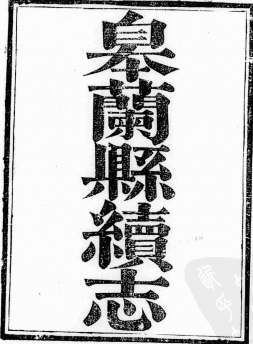 皋蘭縣續志